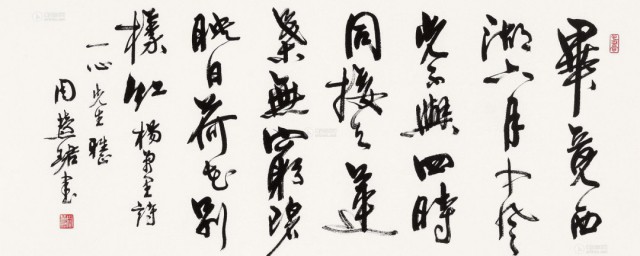 畢竟西
湖六月中風
光不與四時
同接天蓮
葉無窮碧
映日荷花別
樣紅 楊萬里詩
一心先生
周慧珺書